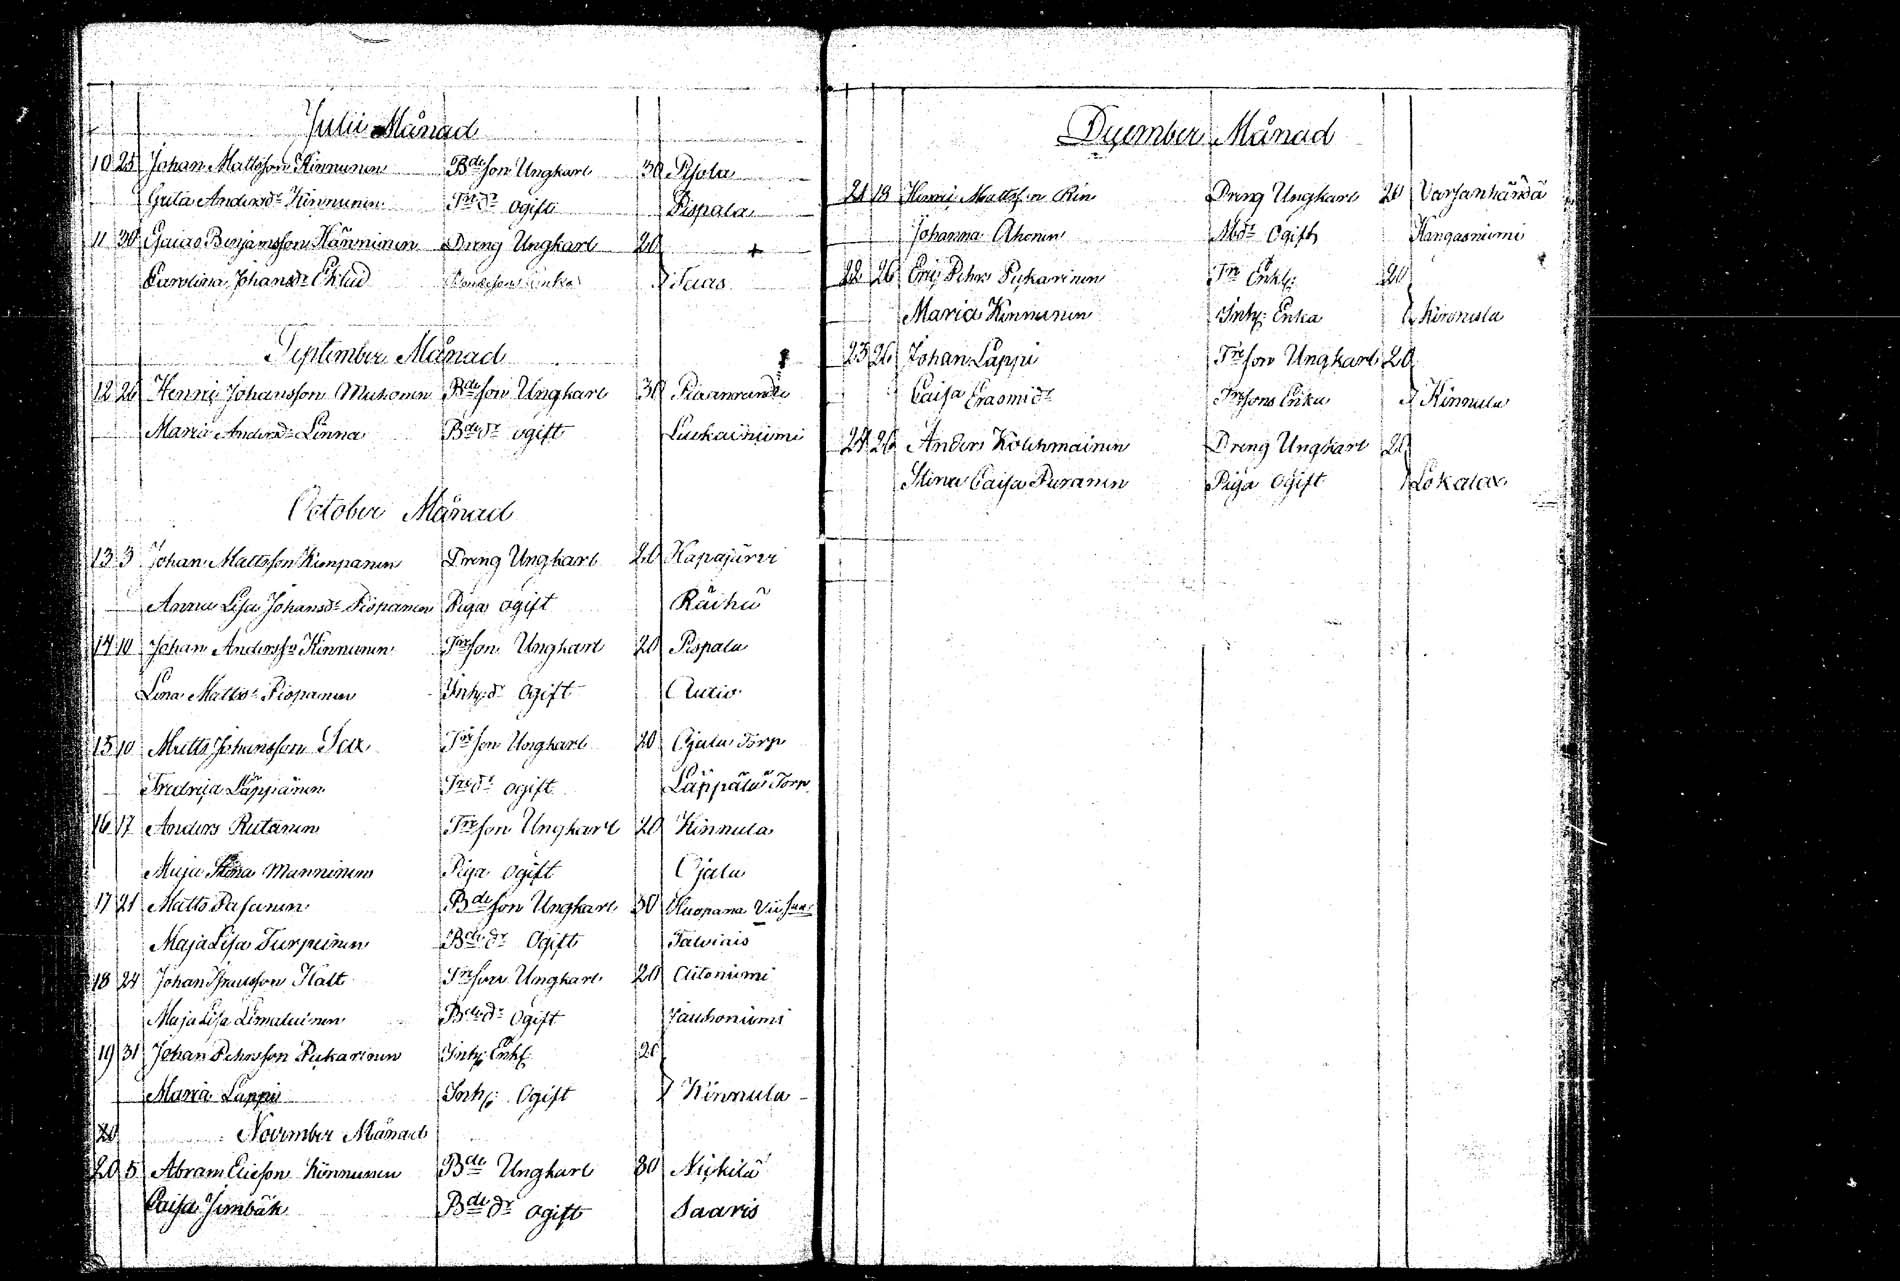 Julii Månad
10 25 Johan Mattsson Kinnunen Bde son Ungkarl 30 Pisola
Greta Andersdr Kinnunen Tre dr ogift Pispala
11 30 Esaias Benjamsson Hänninen Dreng Ungkarl 20 +
Carolina Johansdr Eklud Enka
September Månad
12 26 Henric Johansson Muhonen Bde son Ungkarl 30
Maria Andersdr Linna Bde dr ogift Luukainiemi
October Månad
13 3 Johan Mattsson Kumpanen Dreng Ungkarl 20 Kapajärvi
Anna Lisa Johansdr Pispanen Piga ogift Räihä
14 10 Johan Anderss n Kinnunen Tre son Ungkarl 20 Pispala
Lena Mattsdr Pispanen Inhs: dr ogift Autio
15 10 Matts Johansson Sax Tre son Ungkarl 20 Ojala Torp
Fredrica Läppänen Tre dr ogift Läppälä Torp
16 17 Anders Rutanen Tre son Ungkarl 20 Kinnula
Maja Stina Manninen Piga ogift Ojala
17 21 Matts Pasanen Bde son Ungkarl 30 Muopana
Maja Lisa Turpeinen Bde dr Ogift Talviais
18 24 Johan Halt Tre son Ungkarl 20 Aitoniemi
Maja Lisa Limatainen Bde dr Ogift Jauhoniemi
19 31 Johan Pehrsson Pukarinen Inhs: Enkl: 20
Maria Lappi Inhs: Ogift Kinnula
20 November Månad
20 5 Abram Ericson Kinnunen Bde Ungkarl 30 Mickilä
Caisa Jimbäk Bde dr ogift Saaris
December Månad
21 19 Henric Mattss n Ungkarl 20
Johanna Ahonen Ogift Kangasniemi
22 26 Eric Pehrs Pukarinen Tre Enkl: 20
Maria Kinnunen Inhs: Enka Kinnula
23 26 Johan Lappi Tre son Ungkarl 20
Caisa Erasmidr Tre sons Enka Kinnula
24 26 Anders Kolehmainen Dreng Ungkarl 20
Stina Caisa Puranen Piga Ogift Lokalax